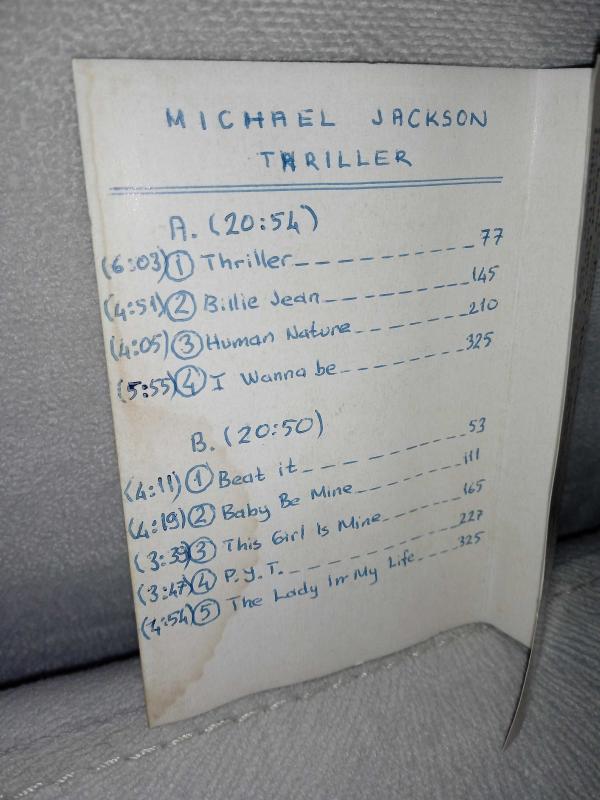 MICHAEL JACKSON
THRILLER
A. (20:54)
(6:03) 1 Thriller 77
(4:51) 2 Billie Jean 145
(4:05) 3 Human Nature 210
(5:55) 4 I Wanna be 325
B. (20:50)
(4:11) 1 Beat it 53
(4:19) 2 Baby Be Mine 111
(3:39) 3 This Girl Is Mine 165
(3:47) 4 P.Y.T. 227
(4:54) 5 The Lady In My Life 325